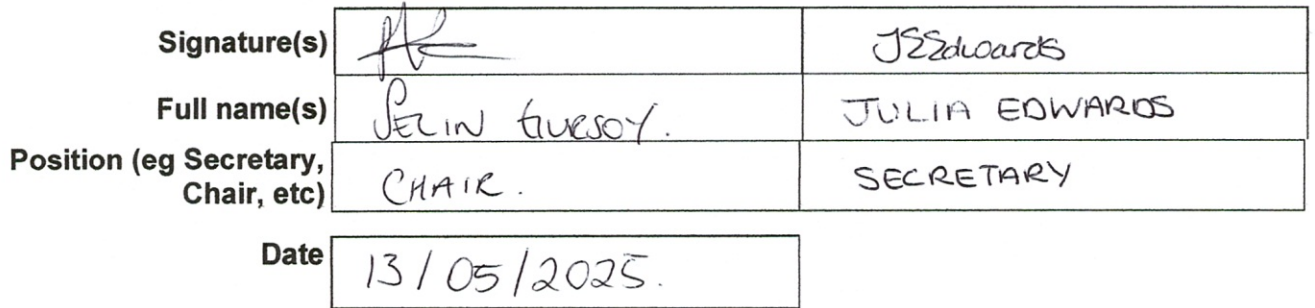 Signature(s) JEEdwards
Full name(s) SELIN GURSOY. JULIA EDWARDS
Position (eg Secretary,
Chair, etc) CHAIR. SECRETARY
Date 13/05/2025.